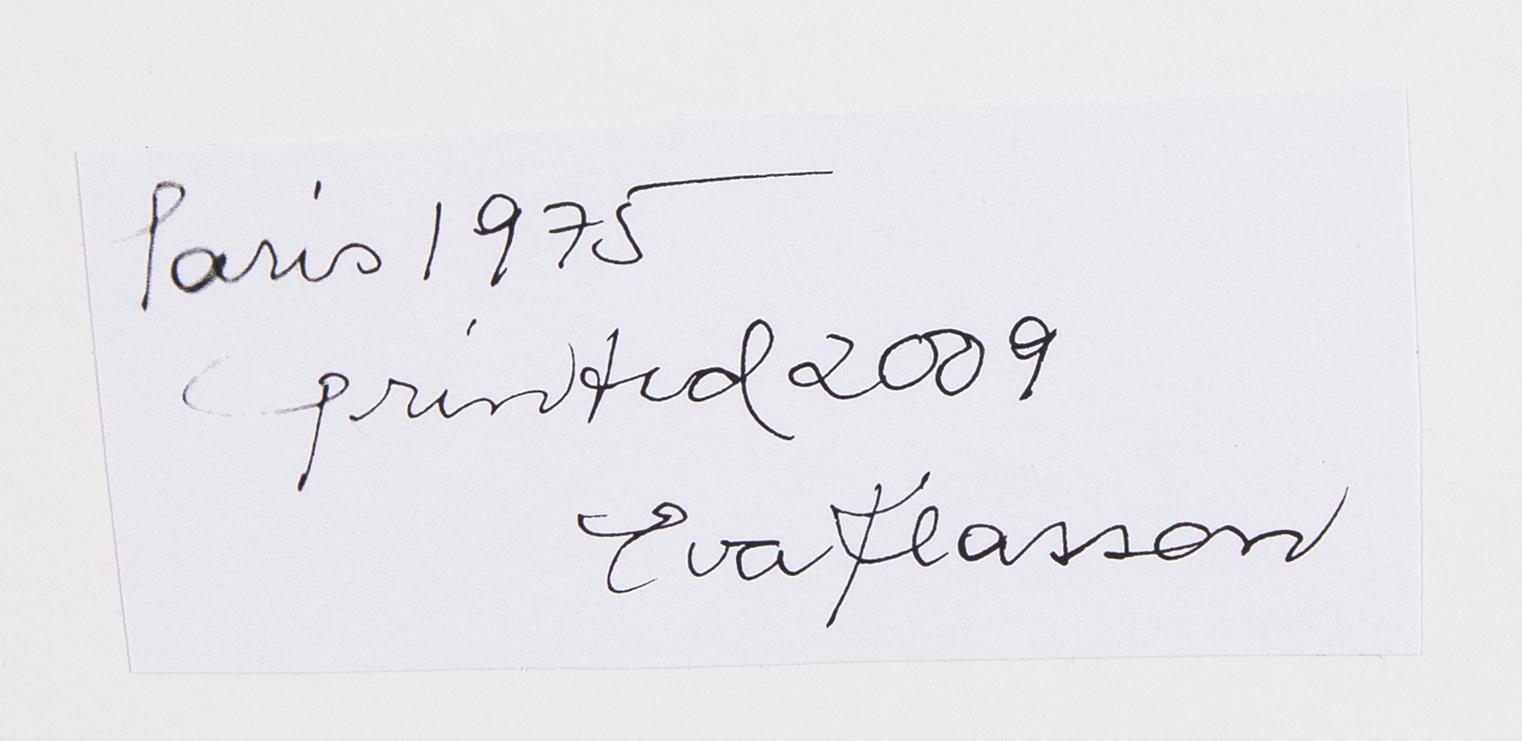 Paris 1975
printed 2009
Eva Klasson